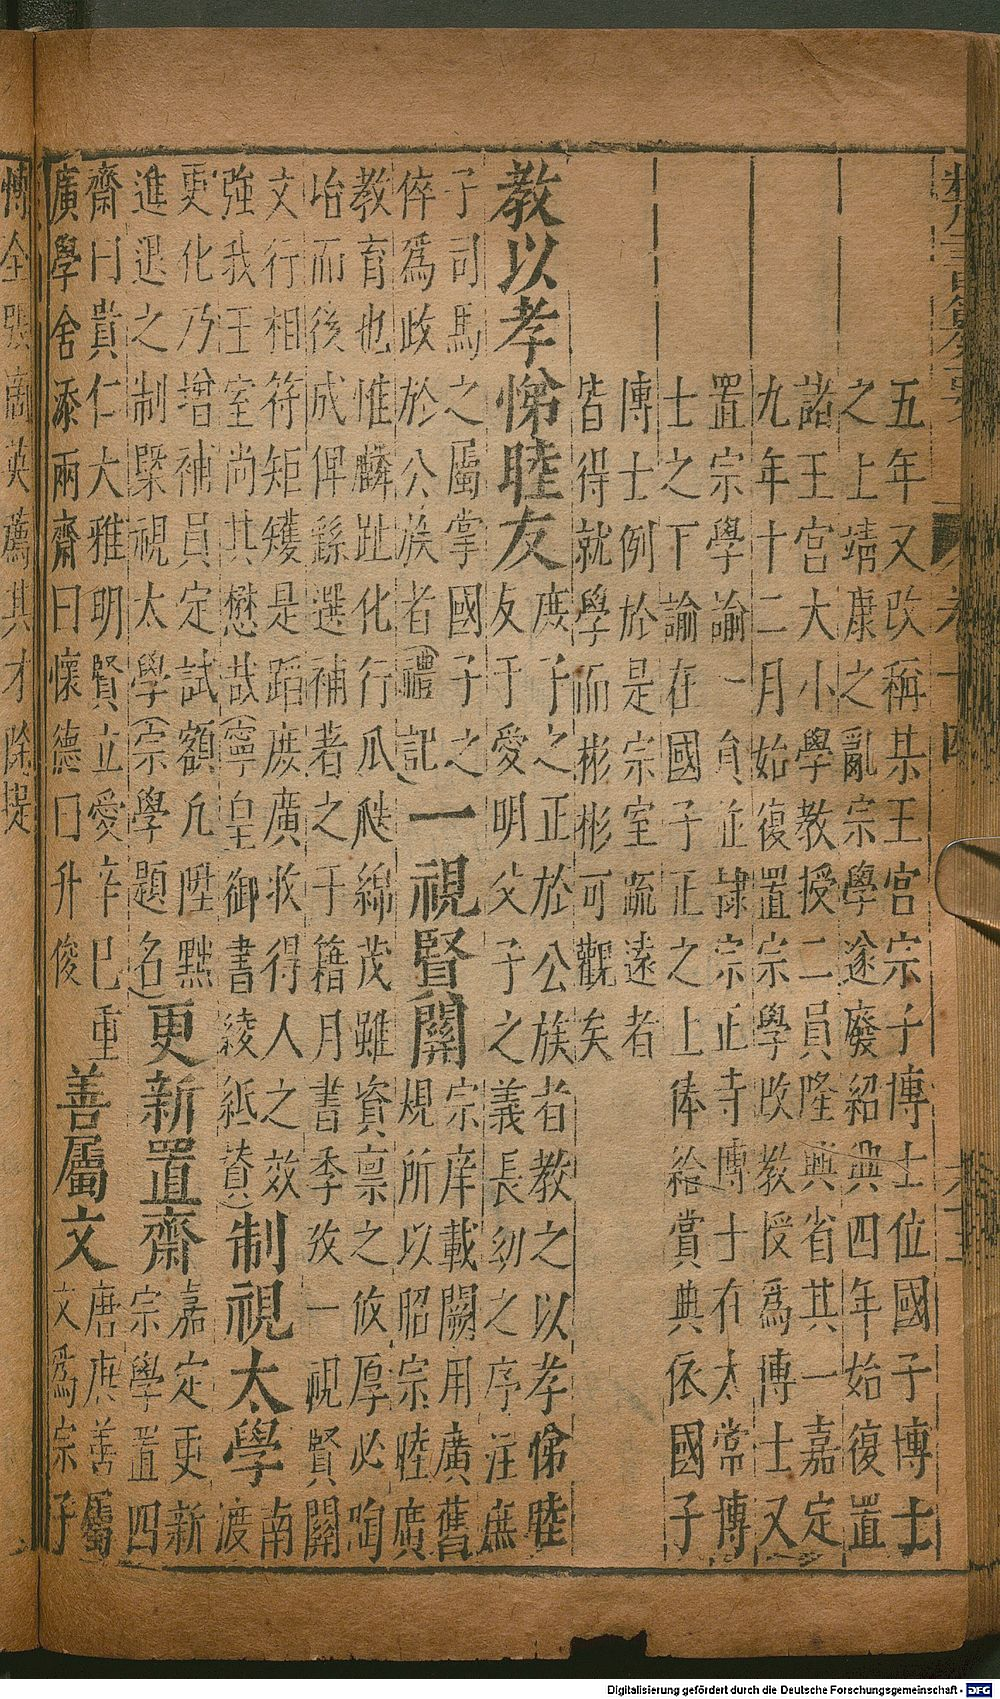 五年又改稱某王宮宗子博士位國子博士
之上靖康之亂宗學遂廢紹興四年始復置
諸王宮大小學教授二員隆興省其一嘉定
九年十二月始復置宗學改教授爲博士又
置宗學諭一員並隸宗正寺博士在太常博
士之下諭在國子正之上俸給賞典依國子
博士例於是宗室疏遠者
皆得就學而彬彬可觀矣
教以孝悌睦友
庶子之正於公族者教之以孝悌睦
友于愛明父子之義長幼之序注庶
子司馬之屬掌國子之
倅爲政於公族者(禮記)
一視賢關
宗庠載闢用廣舊
規所以昭宗睦廣
教育也惟麟趾化行瓜瓞綿茂雖資禀之攸厚必陶
冶而後成俾繇選補者之于籍月書季攷一視賢關
文行相符矩矱是蹈庶廣收得人之效
強我王室尚其懋哉(寧皇御書綾紙賛)
制視太學
南
渡
更化乃增補員定試額凡陞黜
進退之制槩視太學(宗學題名)
更新置齋
嘉定更新
宗學置四
齋曰貴仁大雅明賢立愛辛巳重
廣學舍添兩齋曰懷德曰升俊
善屬文
唐庶善屬
文爲宗子
博全張商英薦其才除提
卷十四
Digitalisierung gefördert durch die Deutsche Forschungsgemeinschaft - DFG